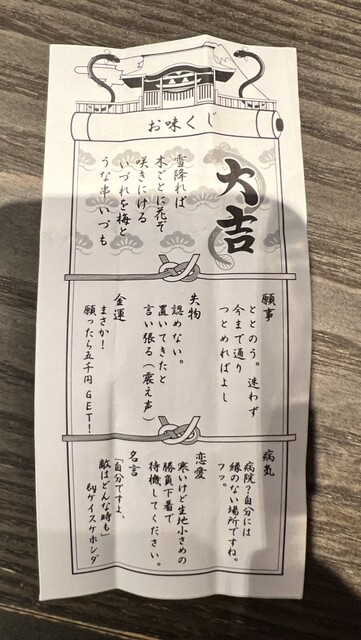 お味くじ
大吉
雪降れば
木ごとに花ぞ
咲きにける
いづれを梅と
うな串いづも
願事
ととのう。迷わず
今まで通り
つとめればよし
失物
認めない。
置いてきたと
言い張る(震え声)
金運
まさか!
願ったら五千円GET!
病気
病院?自分には
縁のない場所ですね。
フッ。
恋愛
寒いけど生地小さめの
勝負下着で
待機してください。
名言
「自分ですよ、
敵はどんな時も」
byケイスケホンダ